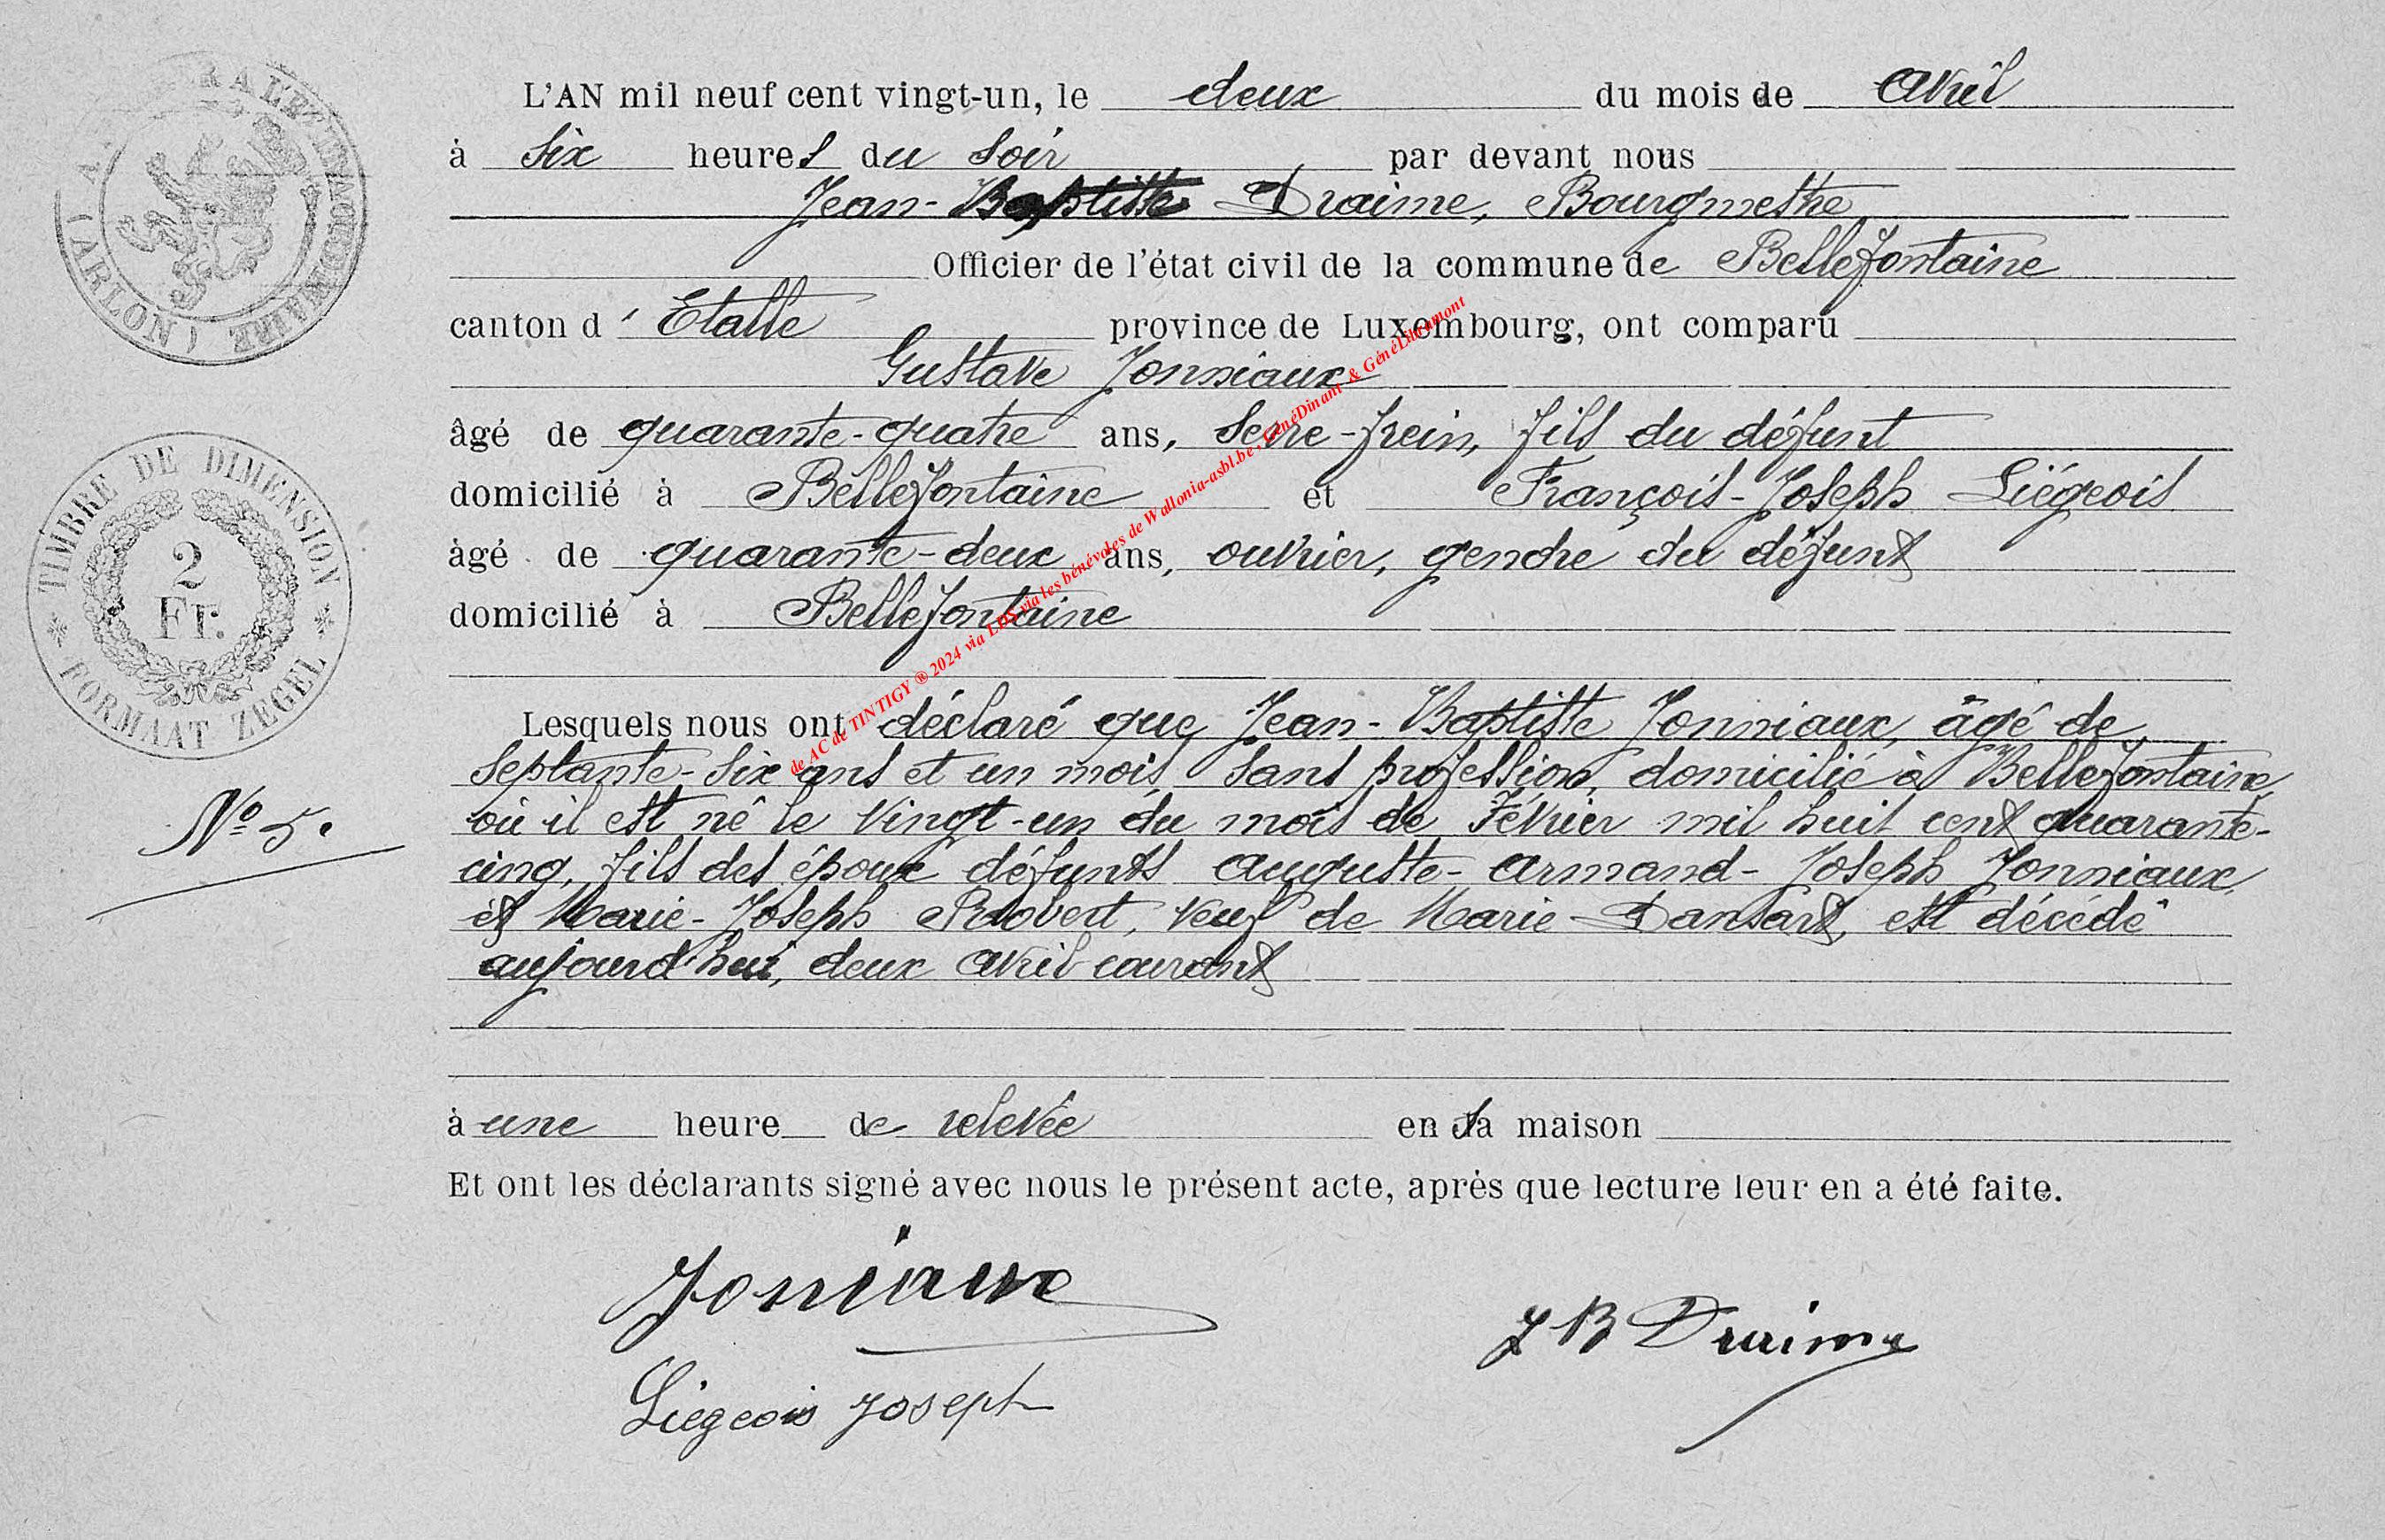 L'AN mil neuf cent vingt-un, le deux du mois de avril
à six heures du soir par devant nous
Jean-Baptiste Draime, Bourgmestre
Officier de l'état civil de la commune de Bellefontaine
canton d'Etalle province de Luxembourg, ont comparu
Gustave Jonniaux
âgé de quarante-quatre ans, serre-frein, fils du défunt
domicilié à Bellefontaine et François-Joseph Liégeois
âgé de quarante-deux ans, ouvrier, gendre du défunt
domicilié à Bellefontaine
Lesquels nous ont déclaré que Jean-Baptiste Jonniaux, âgé de
septante-six ans et un mois, sans profession, domicilié à Bellefontaine,
où il est né le vingt-un du mois de Février mil huit cent quarante-
cinq, fils des époux défunts Auguste-Armand-Joseph Jonniaux,
et Marie-Joseph Robert, veuf de Marie Dansart, est décédé
aujourd'hui, deux avril courant
à une heure de relevée en sa maison
Et ont les déclarants signé avec nous le présent acte, après que lecture leur en a été faite.
Joniaux
J B Draime
Liégeois Joseph
N° 5.
TIMBRE DE DIMENSION
2
Fr.
FORMAAT ZEGEL
(ARLON)
de AC de TINTIGY ® 2024 via LDS via les bénévoles de Wallonia-asbl.be, GénéDinant & GénéLibramont